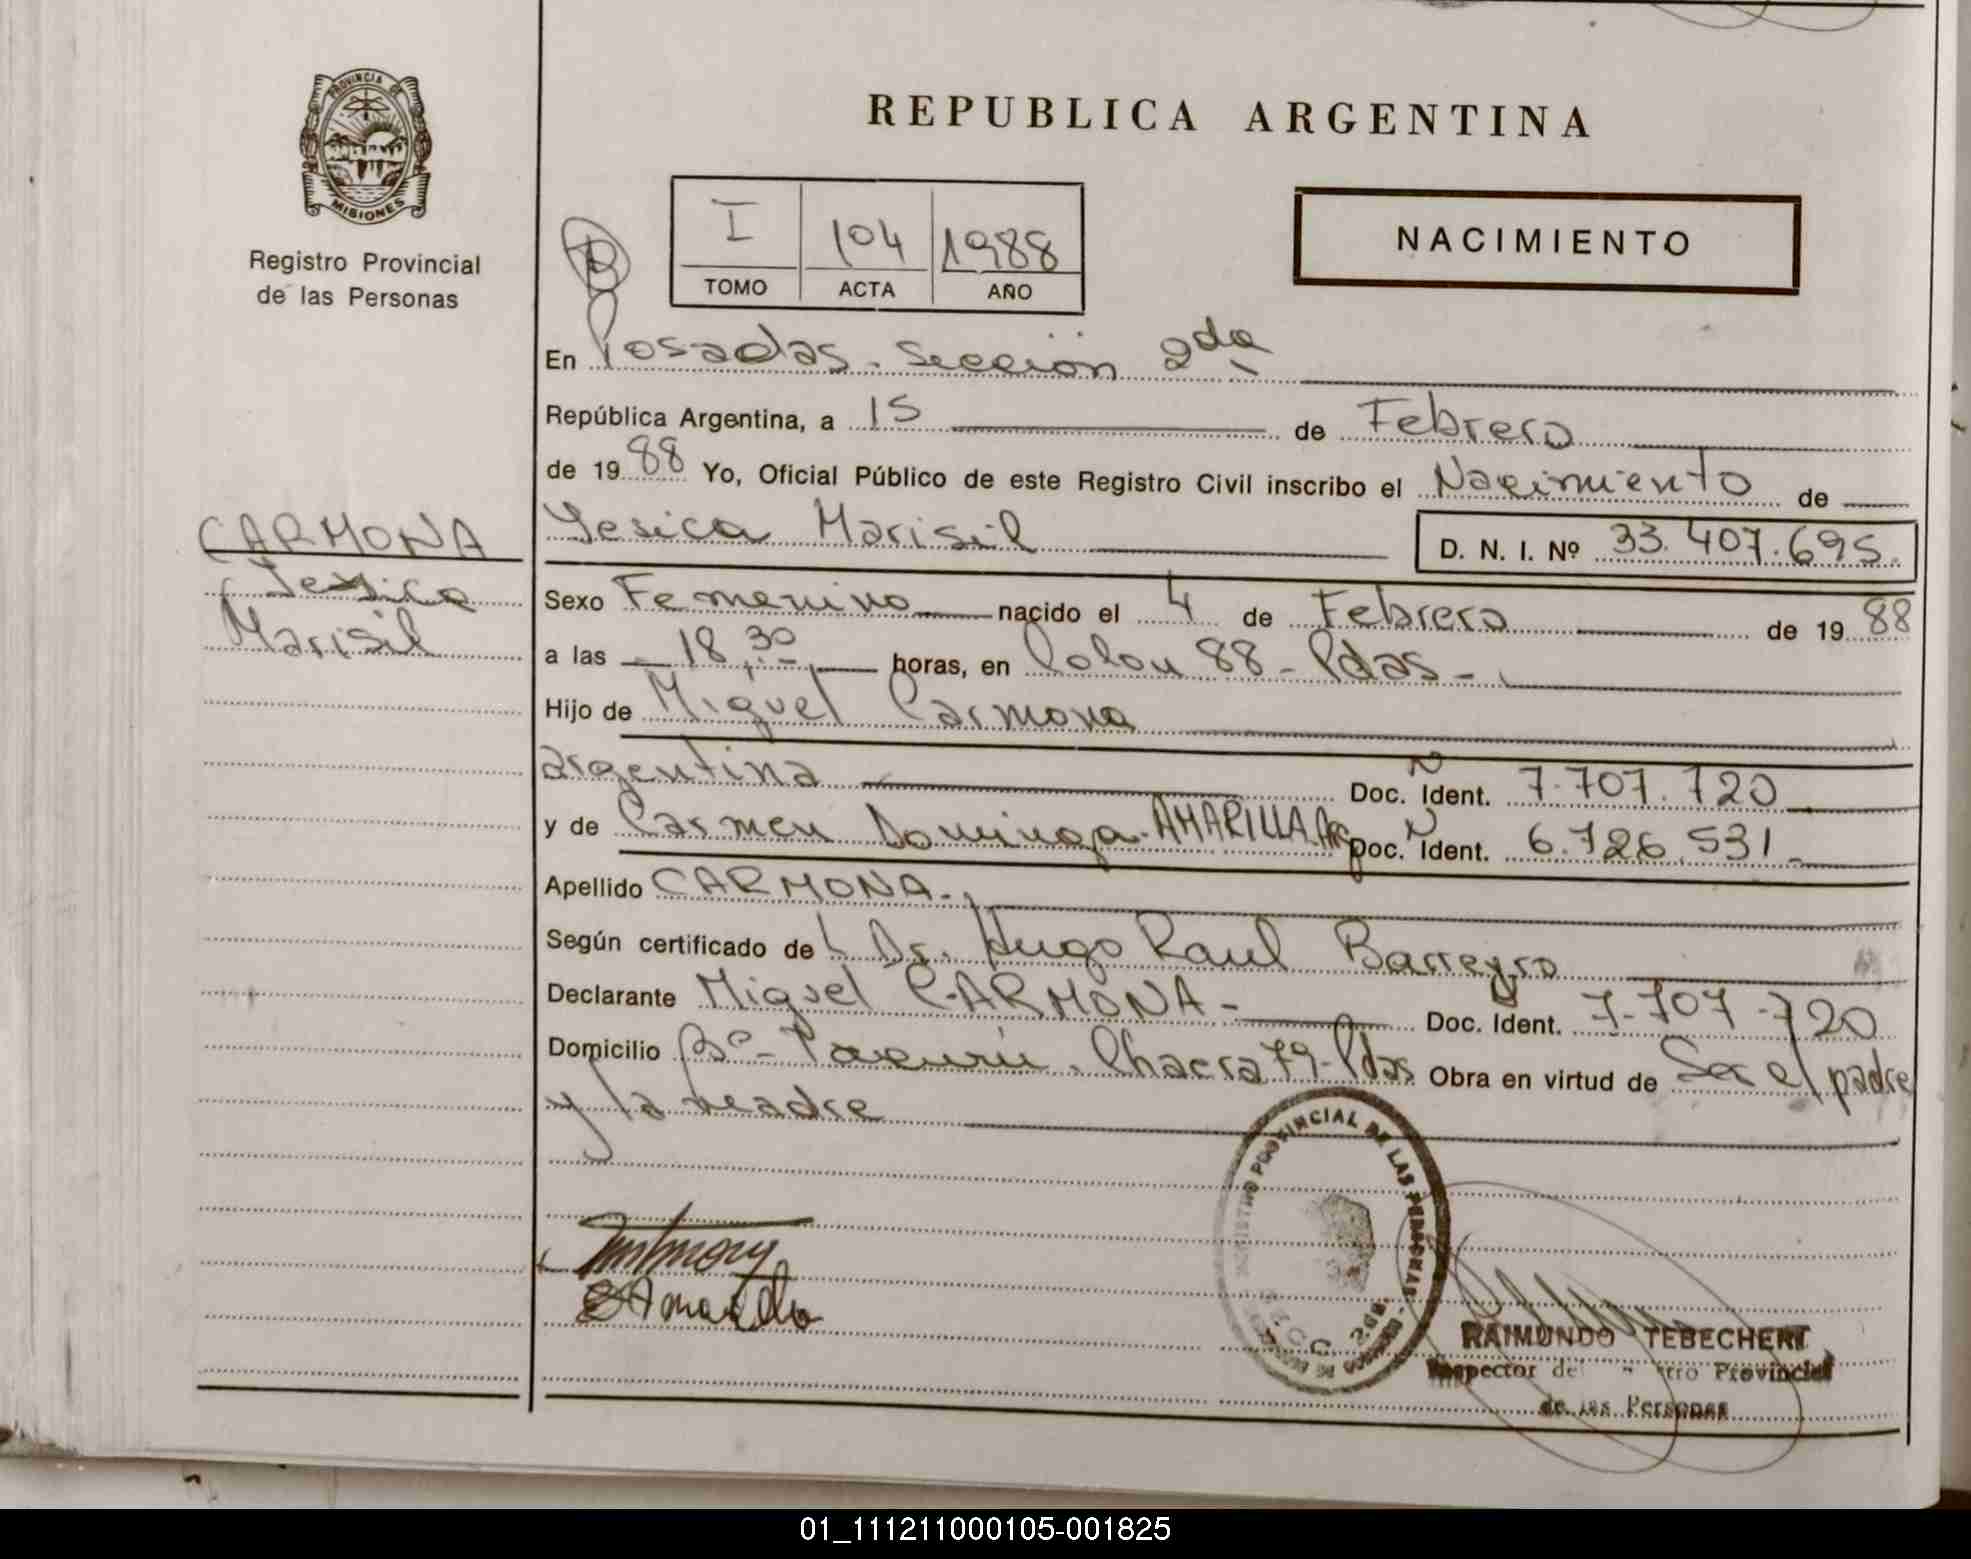 PROVINCIA DE
MISIONES
Registro Provincial
de las Personas
REPUBLICA ARGENTINA
I 104 1988
TOMO ACTA AÑO
NACIMIENTO
En Posadas - Sección 2da
República Argentina, a 15 de Febrero
de 1988 Yo, Oficial Público de este Registro Civil inscribo el Nacimiento de
CARMONA
Yesica Marisil
D. N. I. Nº 33.407.695.
Yesica
Marisil
Sexo Femenino nacido el 4 de Febrero de 1988
a las 18,30 horas, en Colon 88 - Pdas -
Hijo de Miguel Carmona
argentina Doc. Ident. 7.707.720
y de Carmen Dominga AMARILLA Arg Doc. Ident. 6.726.531 -
Apellido CARMONA -
Según certificado de Dr. Hugo Raul Barreyro
Declarante Miguel CARMONA - Doc. Ident. 7-707-720
Domicilio Bº - Chacra 79 - Pdas Obra en virtud de Ser el padre
y la madre
REGISTRO PROVINCIAL DE LAS PERSONAS
RAIMUNDO TEBECHERI
Inspector del Provincial
de las Personas
01_111211000105-001825